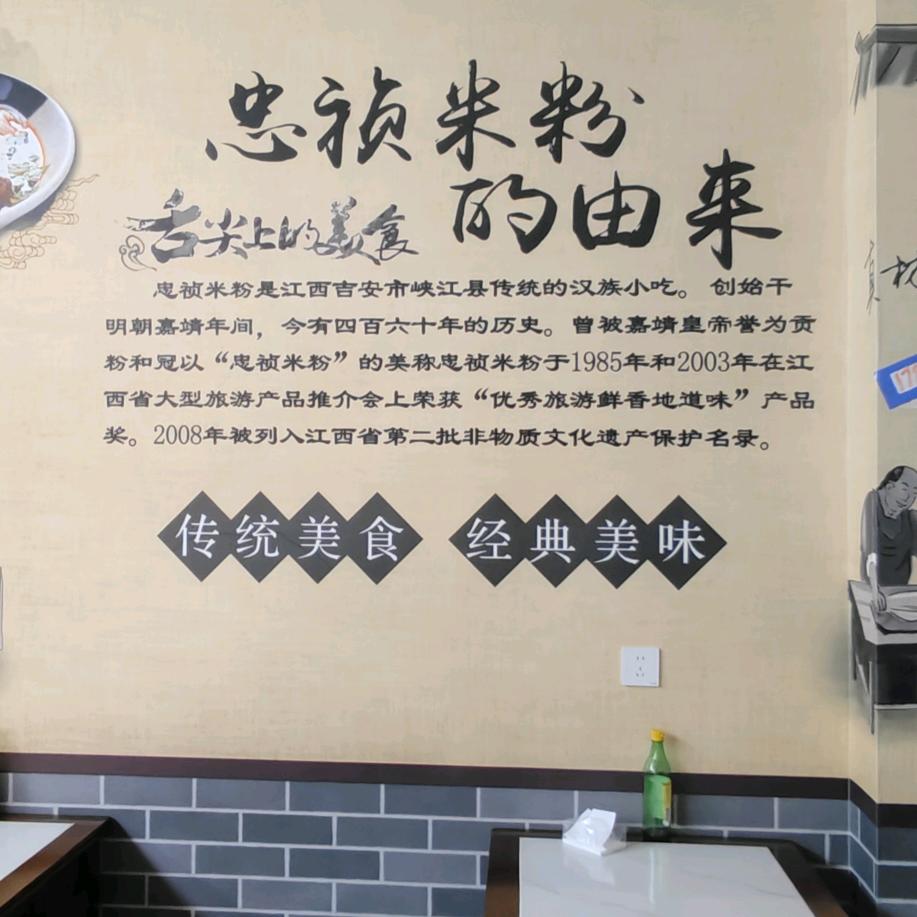 忠祯米粉
的由来
舌尖上的美食
忠祯米粉是江西吉安市峡江县传统的汉族小吃。 创始干
明朝嘉靖年间，今有四百六十年的历史。曾被嘉靖皇帝誉为贡
粉和冠以“忠祯米粉”的美称忠祯米粉于1985年和2003年在江
西省大型旅游产品推介会上荣获“优秀旅游鲜香地道味”产品
奖。2008年被列入江西省第二批非物质文化遗产保护名录。
传统美食 经典美味